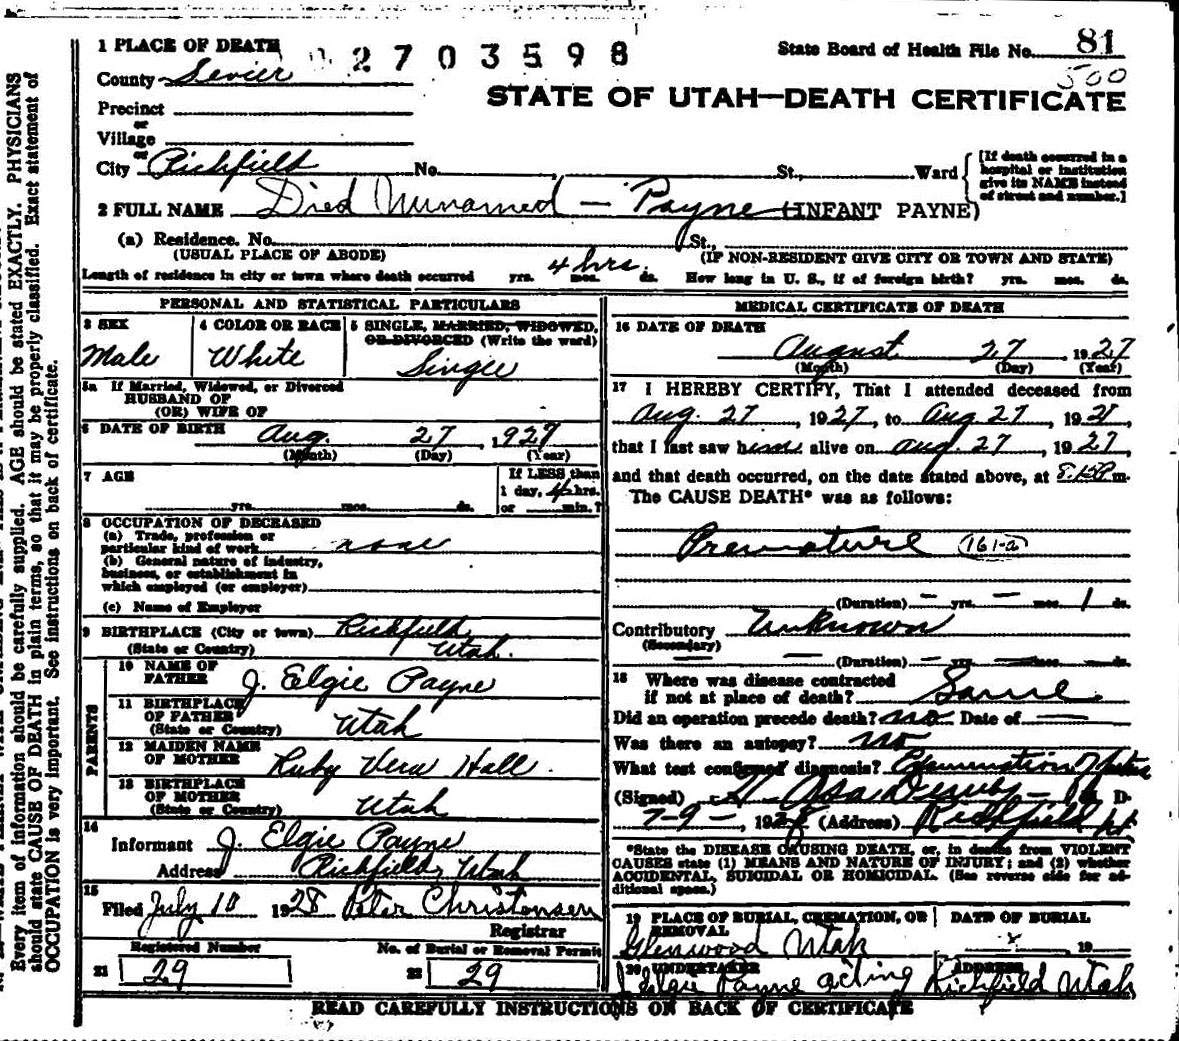 1 PLACE OF DEATH
2703598
State Board of Health File No. 81
500
County Sevier
STATE OF UTAH—DEATH CERTIFICATE
Precinct
or
Village
or
City Richfield No. St., Ward
[If death occurred in a hospital or institution give its NAME instead of street and number.]
2 FULL NAME Died Unnamed — Payne (INFANT PAYNE)
(a) Residence. No. St.,
(USUAL PLACE OF ABODE) (IF NON-RESIDENT GIVE CITY OR TOWN AND STATE)
Length of residence in city or town where death occurred yrs. 4 hrs. mos. ds. How long in U. S., if of foreign birth? yrs. mos. ds.
PERSONAL AND STATISTICAL PARTICULARS
3 SEX Male
4 COLOR OR RACE White
5 SINGLE, MARRIED, WIDOWED, OR DIVORCED (Write the word) Single
5a If Married, Widowed, or Divorced
HUSBAND OF
(OR) WIFE OF
6 DATE OF BIRTH Aug. 27, 1927
(Month) (Day) (Year)
7 AGE
yrs. mos. ds.
If LESS than
1 day, 4 hrs.
or min.?
8 OCCUPATION OF DECEASED
(a) Trade, profession or
particular kind of work none
(b) General nature of industry,
business, or establishment in
which employed (or employer)
(c) Name of Employer
9 BIRTHPLACE (City or town) Richfield,
(State or Country) Utah.
PARENTS
10 NAME OF
FATHER J. Elgie Payne
11 BIRTHPLACE
OF FATHER
(State or Country) Utah
12 MAIDEN NAME
OF MOTHER Ruby Vera Hall.
13 BIRTHPLACE
OF MOTHER
(State or Country) Utah
14
Informant J. Elgie Payne
Address Richfield, Utah
15
Filed July 10 1928 Peter Christensen
Registrar
Registered Number
21 29
No. of Burial or Removal Permit
22 29
MEDICAL CERTIFICATE OF DEATH
16 DATE OF DEATH
August 27, 1927
(Month) (Day) (Year)
17 I HEREBY CERTIFY, That I attended deceased from
Aug. 27, 1927, to Aug 27, 192
that I last saw him alive on Aug. 27, 1927,
and that death occurred, on the date stated above, at m.
The CAUSE DEATH* was as follows:
Premature 161-a
(Duration) — yrs. — mos. 1 ds.
Contributory Unknown
(Secondary)
— — (Duration) — yrs. — mos. — ds.
18 Where was disease contracted
if not at place of death? Same
Did an operation precede death? no Date of —
Was there an autopsy? no
What test confirmed diagnosis? Examination
(Signed) Asa M. D.
7-9-, 1928 (Address) Richfield Ut
*State the DISEASE CAUSING DEATH, or, in deaths from VIOLENT
CAUSES state (1) MEANS AND NATURE OF INJURY; and (2) whether
ACCIDENTAL, SUICIDAL OR HOMICIDAL. (See reverse side for ad-
ditional space.)
19 PLACE OF BURIAL, CREMATION, OR
REMOVAL
Glenwood Utah
DATE OF BURIAL
19
20 UNDERTAKER
J Elgie Payne acting
ADDRESS
Richfield Utah
READ CAREFULLY INSTRUCTIONS ON BACK OF CERTIFICATE
Every item of information should be carefully supplied. AGE should be stated EXACTLY. PHYSICIANS
should state CAUSE OF DEATH in plain terms, so that it may be properly classified. Exact statement of
OCCUPATION is very important. See instructions on back of certificate.